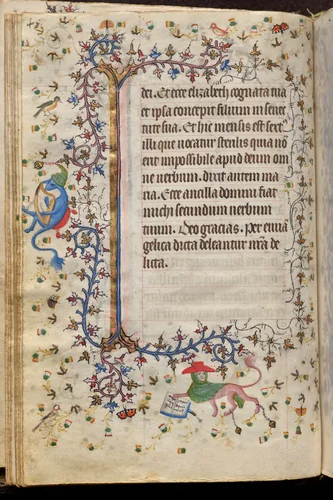 dei. Et ecce elizabeth cognata tua
et ipsa concepit filium in senec
tute sua. Et hic mensis est sext9
illi que vocatur sterilis quia nõ
erit impossibile apud deum om
ne verbum. dixit autem ma
ria. Ecce ancilla domini fiat
michi secundum verbum
tuum. Deo gracias. Per euuã
gelica dicta deleantur nr̃a de
licta.